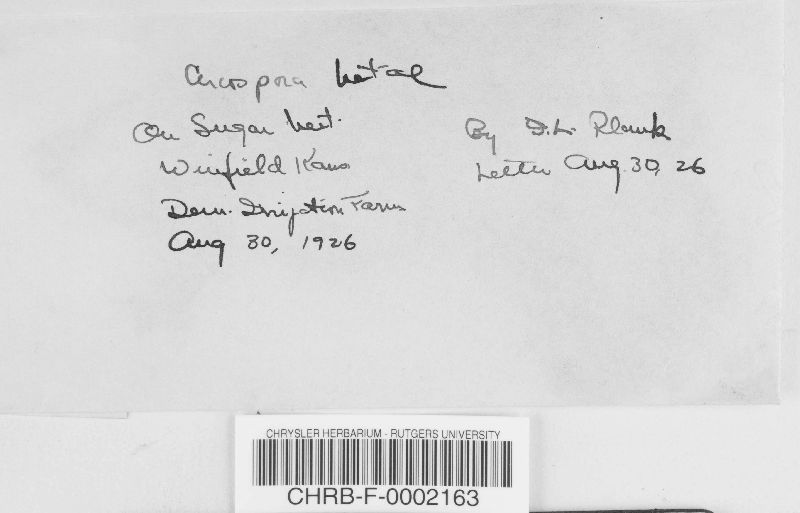 Cercospora
On Sugar beet.
Winfield Kans
Dem. Irrigation Farm
Aug 30, 1926
By
Letter Aug 30, 26
CHRYSLER HERBARIUM - RUTGERS UNIVERSITY
CHRB-F-0002163